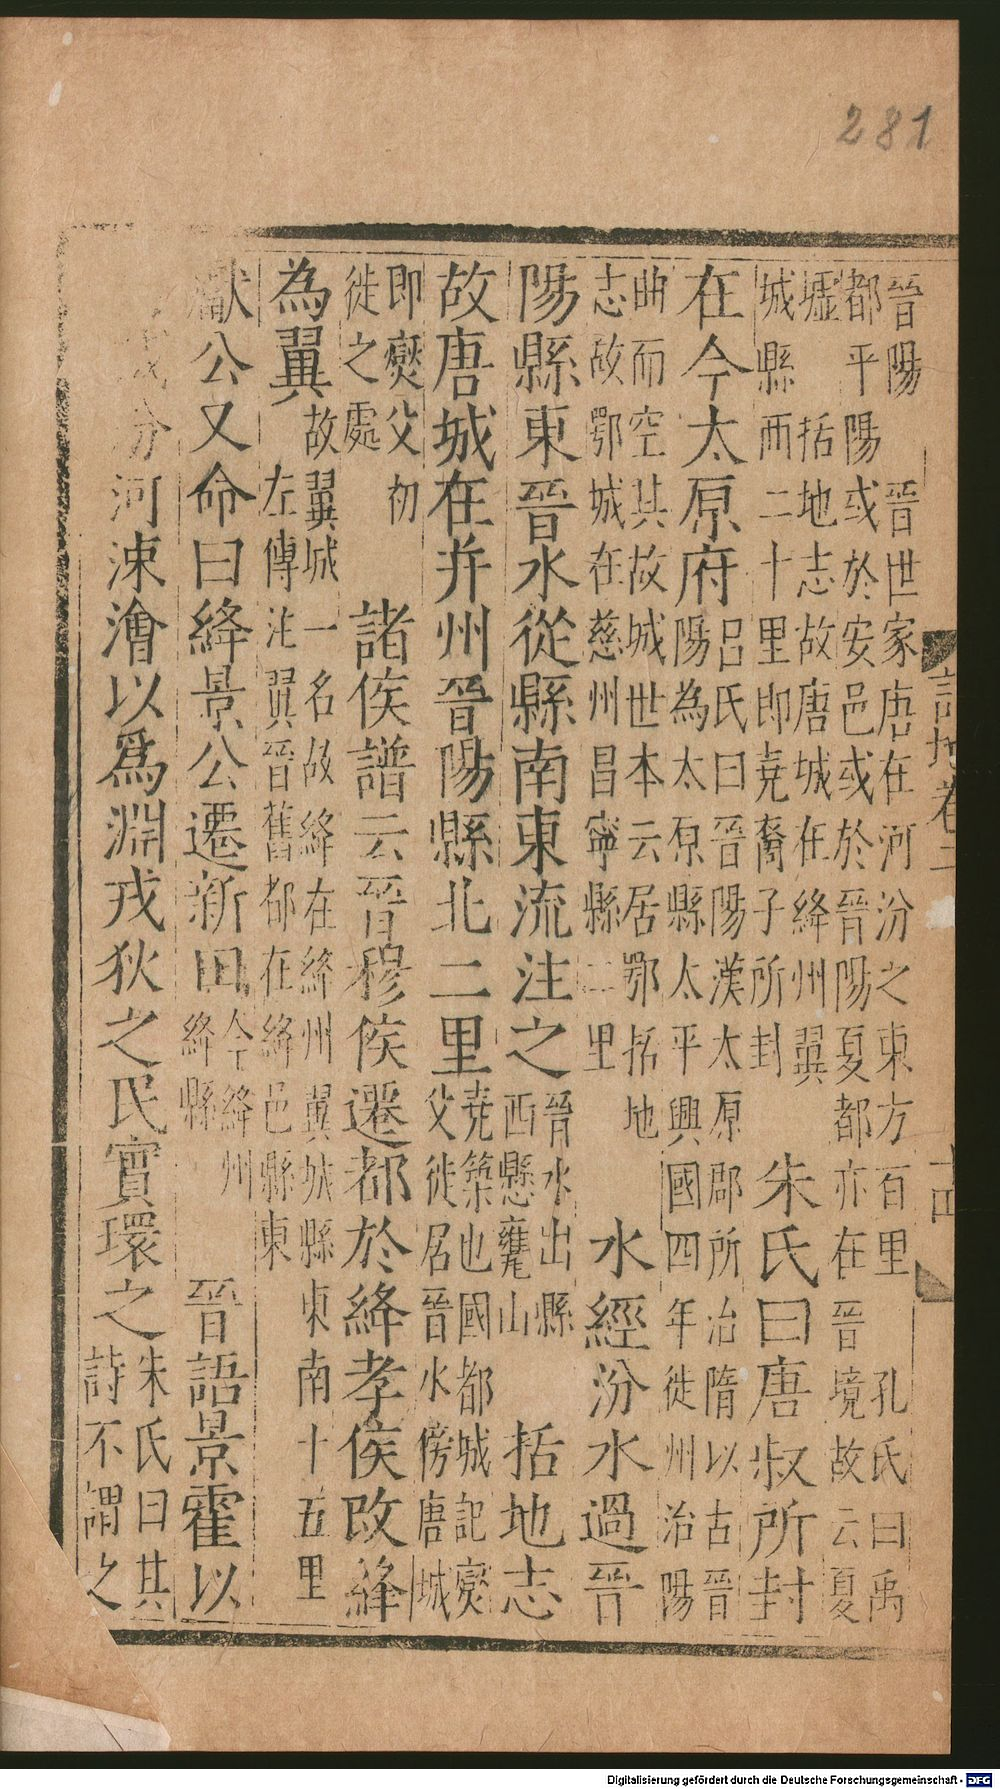 281
詩地卷二
十四
晉陽　晉世家唐在河汾之東方百里　孔氏曰禹
都平陽或於安邑或於晉陽夏都亦在晉境故云夏
墟　括地志故唐城在絳州翼
城縣西二十里即堯裔子所封　朱氏曰唐叔所封
在今太原府呂氏曰晉陽漢太原郡所治隋以古晉
陽為太原縣太平興國四年徙州治陽
曲而空其故城世本云居鄂括地
志故鄂城在慈州昌寧縣二里　水經汾水過晉
陽縣東晉水從縣南東流注之晉水出縣
西懸甕山　括地志
故唐城在并州晉陽縣北二里堯築也國都城記燮
父徙居晉水傍唐城
即燮父初
徙之處　諸侯譜云晉穆侯遷都於絳孝侯改絳
為翼故翼城一名故絳在絳州翼城縣東南十五里
左傳注翼晉舊都在絳邑縣東
獻公又命曰絳景公遷新田今絳州
絳縣　晉語景霍以
城汾河涑澮以爲淵戎狄之民實環之朱氏曰其
詩不謂之
Digitalisierung gefördert durch die Deutsche Forschungsgemeinschaft - DFG